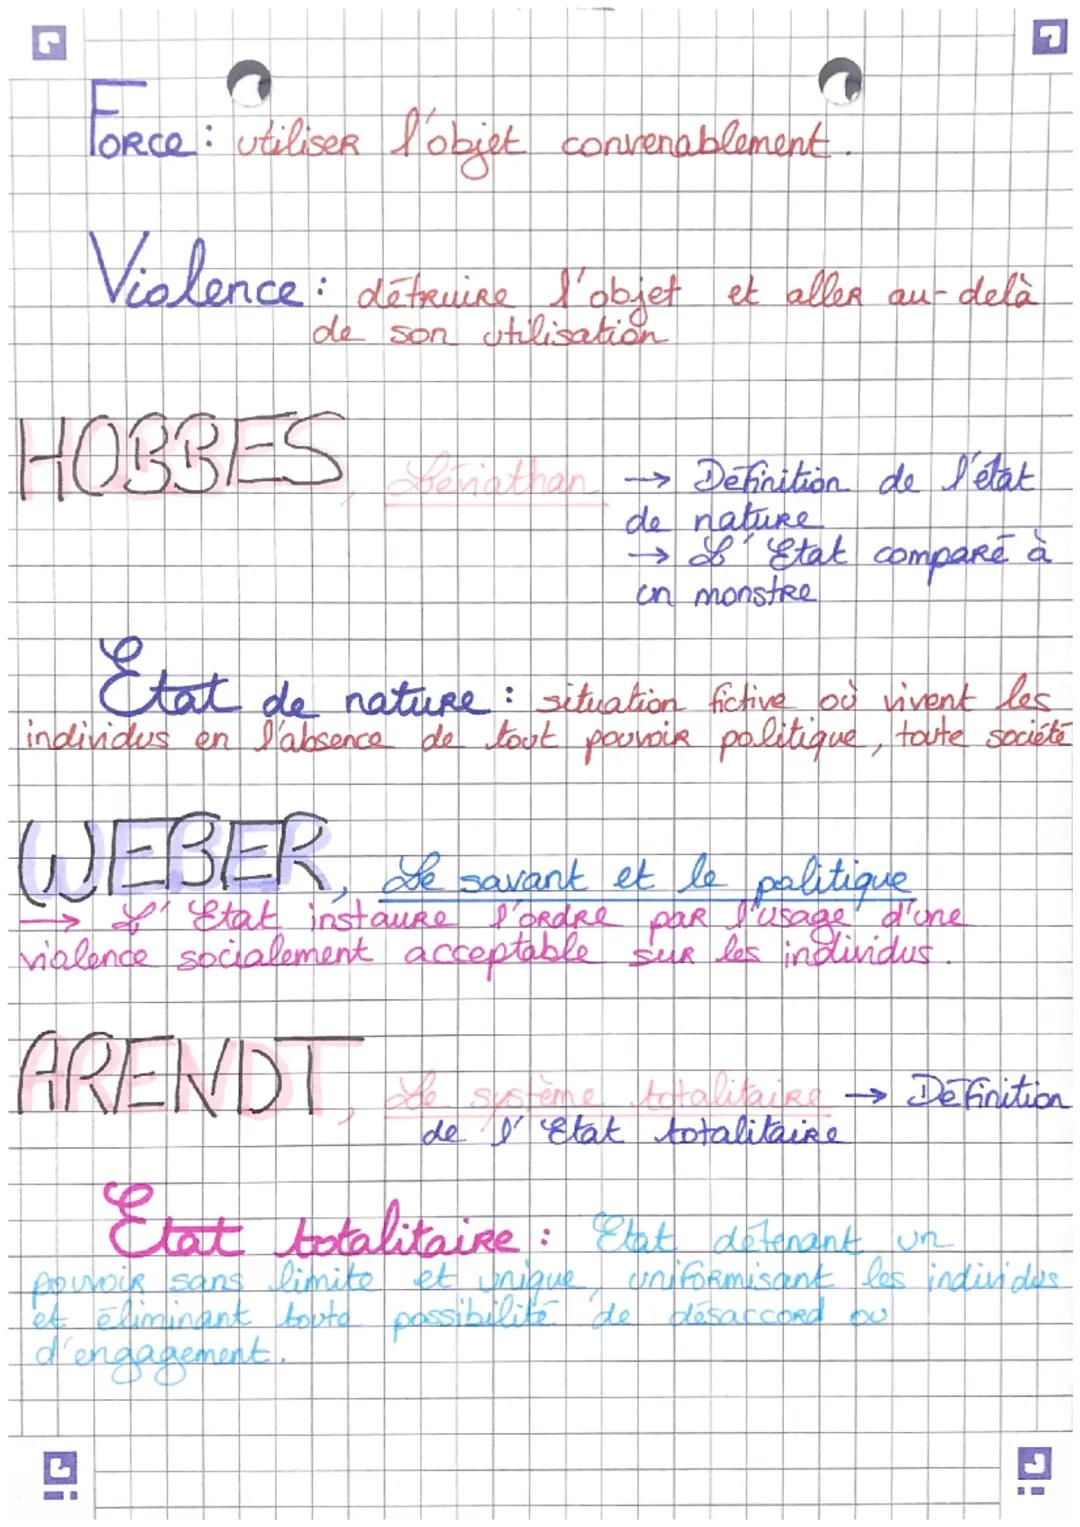 Force : utiliser l'objet convenablement.
Violence : détruire l'objet et aller au-delà
de son utilisation
HOBBES, Léviathan → Définition de l'état
de nature
→ L'Etat comparé à
un monstre
Etat de nature : situation fictive où vivent les
individus en l'absence de tout pouvoir politique, toute société
WEBER, Le savant et le politique
→ L'Etat instaure l'ordre par l'usage d'une
violence socialement acceptable sur les individus.
ARENDT, Le système totalitaire → Définition
de l'Etat totalitaire
Etat totalitaire : Etat détenant un
pouvoir sans limite et unique, uniformisant les individus
et éliminant toute possibilité de désaccord ou
d'engagement.